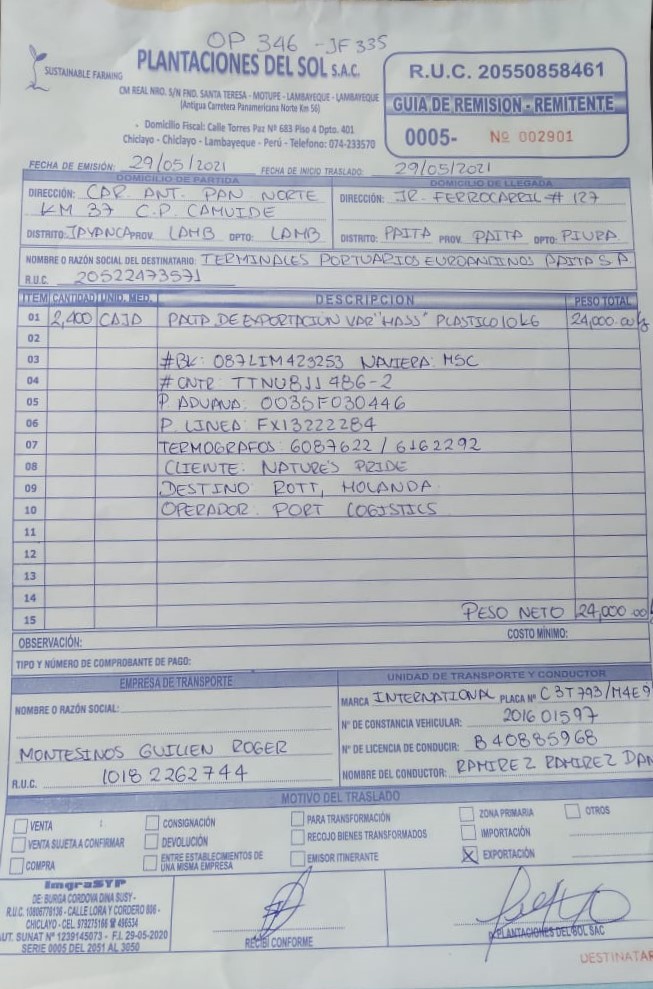 OP 346 - JF 335
SUSTAINABLE FARMING
PLANTACIONES DEL SOL S.A.C.
CM REAL NRO. S/N FND. SANTA TERESA - MOTUPE - LAMBAYEQUE - LAMBAYEQUE
(Antigua Carretera Panamericana Norte Km 56)
- Domicilio Fiscal: Calle Torres Paz Nº 683 Piso 4 Dpto. 401
Chiclayo - Chiclayo - Lambayeque - Perú - Telefono: 074-233570
R.U.C. 20550858461
GUIA DE REMISION - REMITENTE
0005- Nº 002901
FECHA DE EMISIÓN: 29/05/2021 FECHA DE INICIO TRASLADO: 29/05/2021
DOMICILIO DE PARTIDA
DIRECCIÓN: CAR. ANT. PAN NORTE
KM 37 C.P. CAMUIDE
DISTRITO: JAYANCA PROV. LAMB DPTO: LAMB
DOMICILIO DE LLEGADA
DIRECCIÓN: JR. FERROCARRIL # 127
DISTRITO: PAITA PROV. PAITA DPTO: PIURA
NOMBRE O RAZÓN SOCIAL DEL DESTINATARIO: TERMINALES PORTUARIOS EUROANDINOS PAITA S A
R.U.C. 20522473571
ITEM CANTIDAD UNID. MED. DESCRIPCION PESO TOTAL
01 2,400 CAJA PALTA DE EXPORTACION VAR "HASS" PLASTICO 10 KG 24,000.00
02
03 #BK: 087LIM429253 NAVIERA: MSC
04 # CNTR: TTNU811486-2
05 P. ADUANA: 0035F030446
06 P. LINEA: FX13222284
07 TERMOGRAFOS: 6087622 / 6162292
08 CLIENTE: NATURE'S PRIDE
09 DESTINO: ROTT, HOLANDA
10 OPERADOR: PORT LOGISTICS
11
12
13
14
15 PESO NETO 24,000.00
OBSERVACIÓN: COSTO MÍNIMO:
TIPO Y NÚMERO DE COMPROBANTE DE PAGO:
EMPRESA DE TRANSPORTE
NOMBRE O RAZÓN SOCIAL:
MONTESINOS GUILLEN ROGER
R.U.C. 10182262744
UNIDAD DE TRANSPORTE Y CONDUCTOR
MARCA INTERNATIONAL PLACA Nº C3T793/M4E9
Nº DE CONSTANCIA VEHICULAR: 201601597
Nº DE LICENCIA DE CONDUCIR: B40885968
NOMBRE DEL CONDUCTOR: RAMIREZ RAMIREZ DAN
MOTIVO DEL TRASLADO
VENTA
VENTA SUJETA A CONFIRMAR
COMPRA
CONSIGNACIÓN
DEVOLUCIÓN
ENTRE ESTABLECIMIENTOS DE
UNA MISMA EMPRESA
PARA TRANSFORMACIÓN
RECOJO BIENES TRANSFORMADOS
EMISOR ITINERANTE
ZONA PRIMARIA
IMPORTACIÓN
X EXPORTACIÓN
OTROS
ImgraSYP
DE: BURGA CORDOVA DINA SUSY -
R.U.C. 10806776136 - CALLE LORA Y CORDERO 806 -
CHICLAYO - CEL. 979275166 ☎ 496534
AUT. SUNAT Nº 1239145073 - F.I. 29-05-2020
SERIE 0005 DEL 2051 AL 3050
RECIBÍ CONFORME
p.PLANTACIONES DEL SOL SAC
DESTINATAR